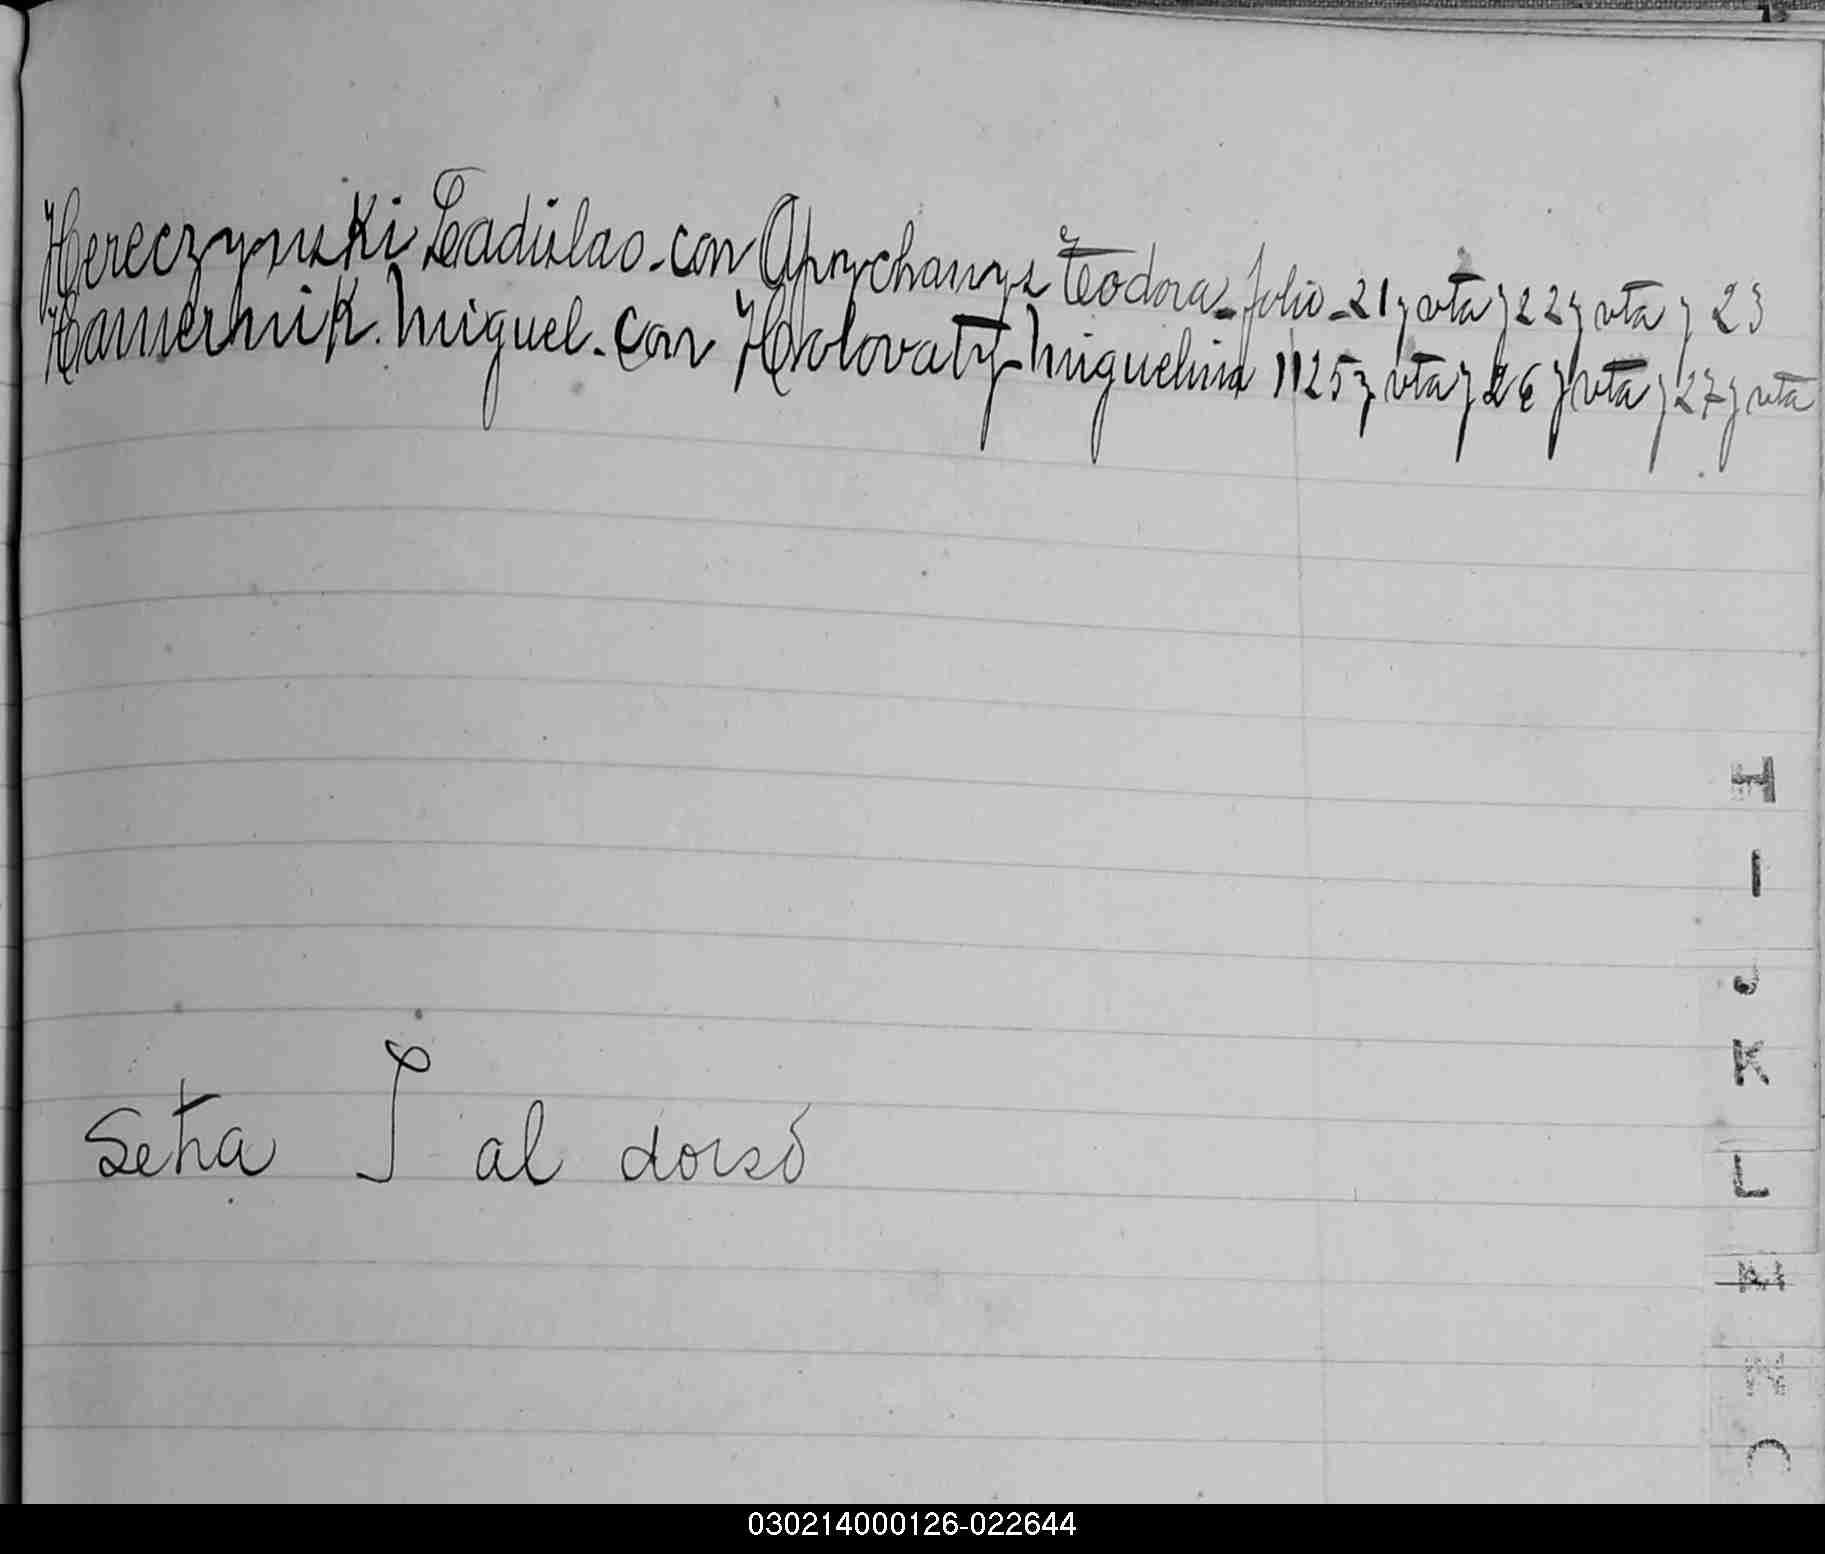 Hereczynski Ladislao - con Teodora - folio - 21 y vta y 22 y vta y 23
Hamernik. Miguel - con Holovaty - Miguelina " 25 y vta y 26 y vta y 27 y vta
H
I
J
K
Setra I al dorso
L
M
N
O
030214000126-022644